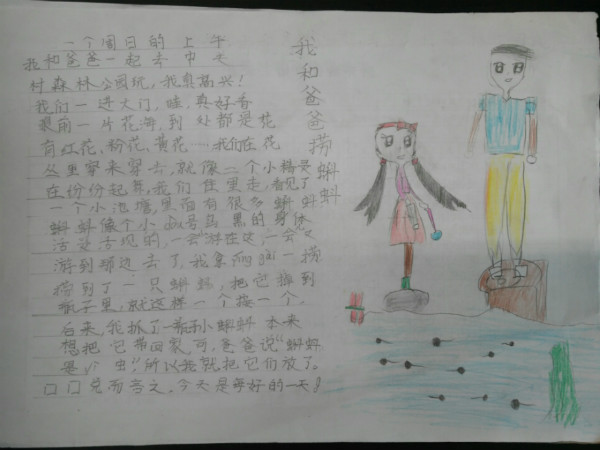 我和爸爸捞蝌蚪
一个周日的上午
我和爸爸一起去中
村森林公园玩,我真高兴!
我们一进大门,哇,真好香
眼前一片花海,到处都是花
有红花,粉花,黄花…我们在花
丛里穿来穿去,就像二个小精灵
在份份起舞,我们往里走,看见了
一个小池塘,里面有很多蝌蚪
蝌蚪像个小逗号乌黑的身体
活泼的,一会游在这,一会又
游到那边去了,我拿一捞
捞到了一只蝌蚪,把它放到
瓶子里,就这样一个接一个,
后来,我抓了一瓶子小蝌蚪 本来
想把它带回家,可,爸爸说"蝌蚪
是 虫",所以我就把它们放了。
而言之,今天是美好的一天!